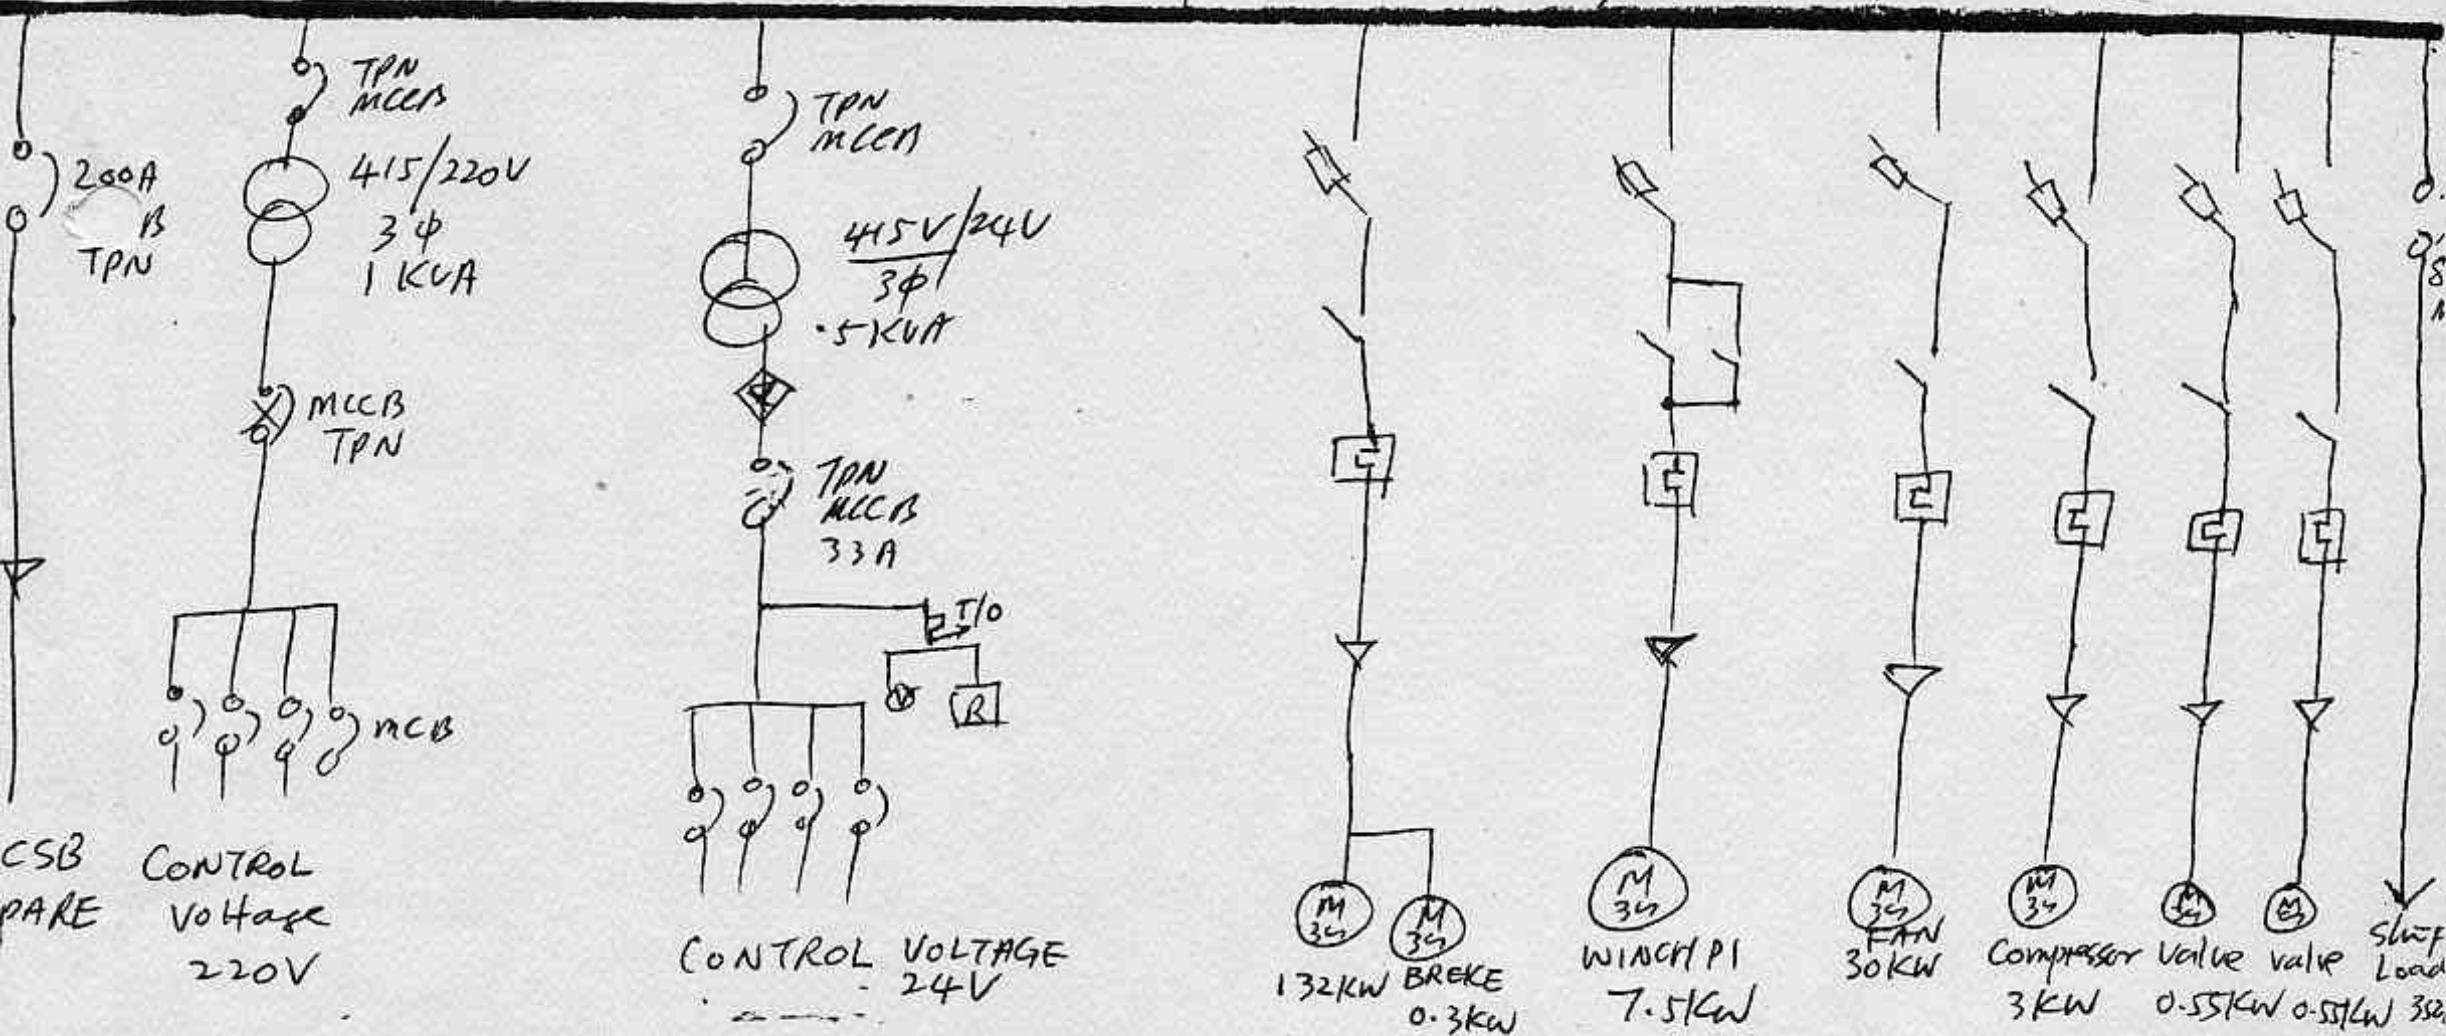 200A
B
TPN
CSB
PARE
TPN
MCCB
415/220V
3φ
1 KVA
MCCB
TPN
MCB
CONTROL
Voltage
220V
TPN
MCCB
415V/24V
3φ
.5KVA
TPN
MCCB
33A
T/O
V
R
CONTROL VOLTAGE
24V
M
3~
132KW
M
3~
BREKE
0.3KW
M
3~
WINCH/P1
7.5KW
M
3~
FAN
30KW
M
3~
Compressor
3KW
M
3~
Valve
0.55KW
M
valve
0.55KW
Load